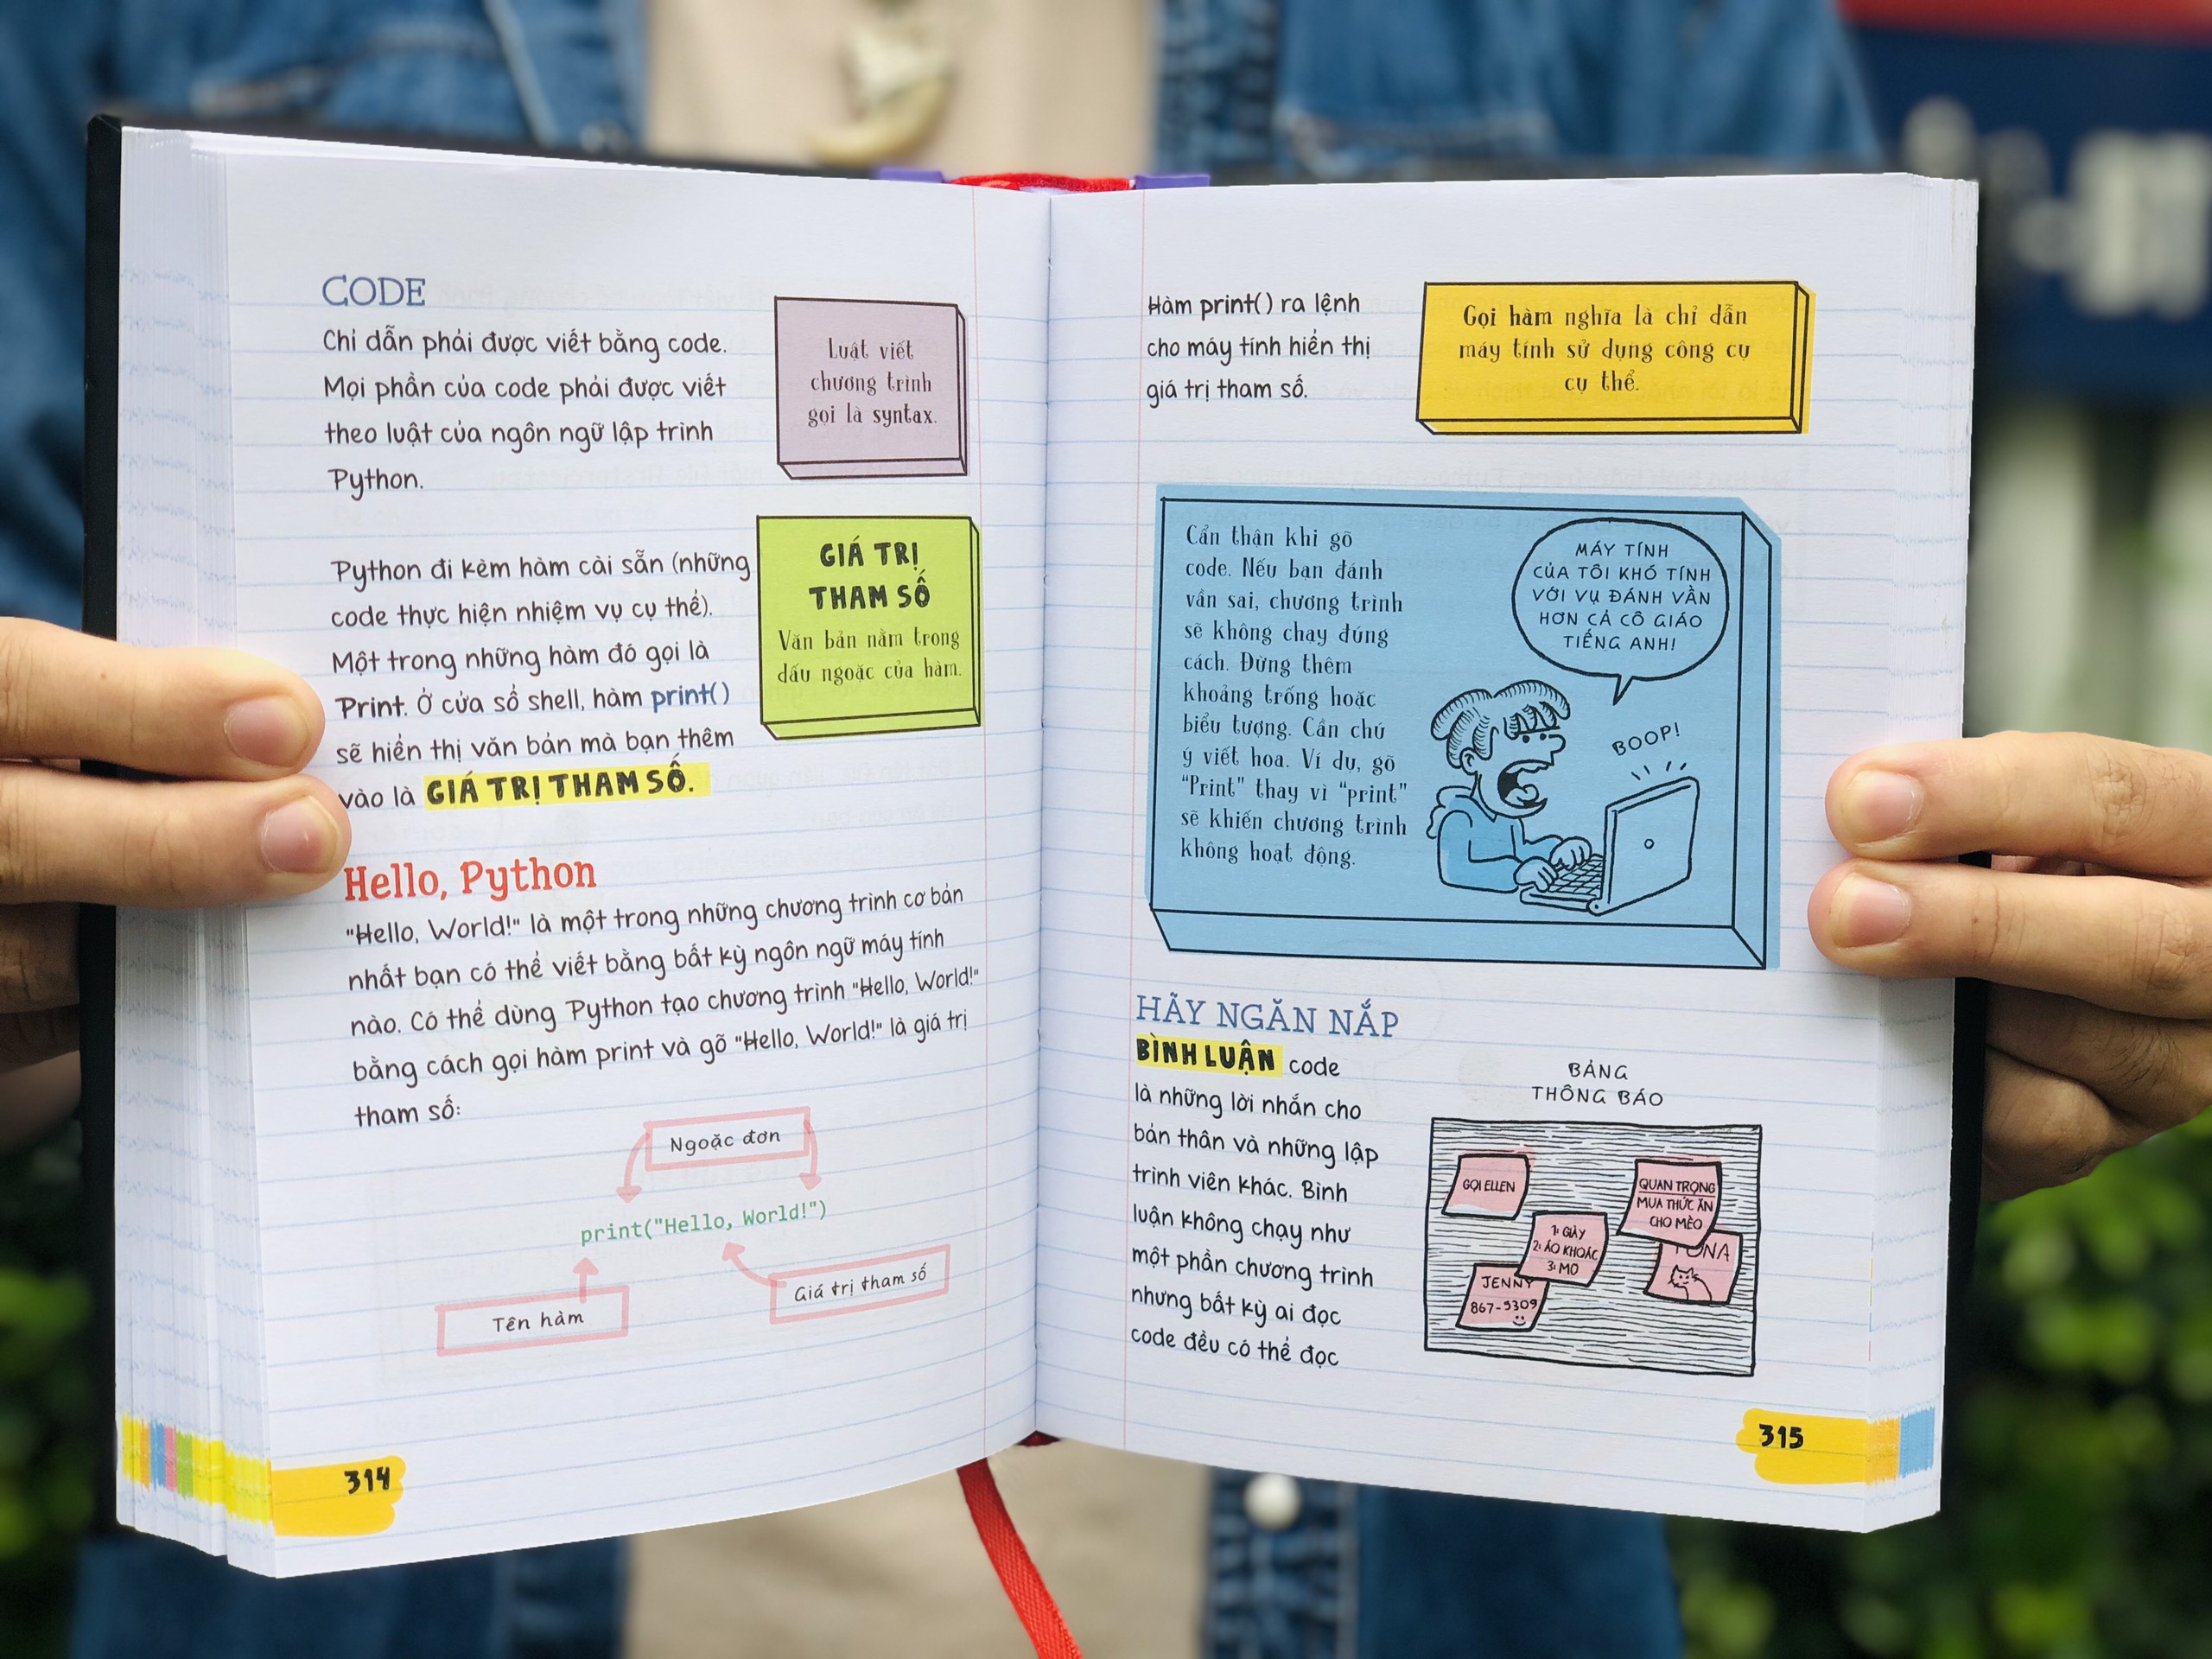 CODE
Chỉ dẫn phải được viết bằng code.
Mọi phần của code phải được viết
theo luật của ngôn ngữ lập trình
Python.
Luật viết
chương trình
gọi là syntax.
Python đi kèm hàm cài sẵn (những
code thực hiện nhiệm vụ cụ thể).
Một trong những hàm đó gọi là
Print. Ở cửa sổ shell, hàm print()
sẽ hiển thị văn bản mà bạn thêm
vào là GIÁ TRỊ THAM SỐ.
GIÁ TRỊ
THAM SỐ
Văn bản nằm trong
dấu ngoặc của hàm.
Hello, Python
"Hello, World!" là một trong những chương trình cơ bản
nhất bạn có thể viết bằng bất kỳ ngôn ngữ máy tính
nào. Có thể dùng Python tạo chương trình "Hello, World!"
bằng cách gọi hàm print và gõ "Hello, World!" là giá trị
tham số:
Ngoặc đơn
print("Hello, World!")
Tên hàm
Giá trị tham số
314
Hàm print() ra lệnh
cho máy tính hiển thị
giá trị tham số.
Gọi hàm nghĩa là chỉ dẫn
máy tính sử dụng công cụ
cụ thể.
Cẩn thận khi gõ
code. Nếu bạn đánh
vần sai, chương trình
sẽ không chạy đúng
cách. Đừng thêm
khoảng trống hoặc
biểu tượng. Cần chú
ý viết hoa. Ví dụ, gõ
"Print" thay vì "print"
sẽ khiến chương trình
không hoạt động.
MÁY TÍNH
CỦA TÔI KHÓ TÍNH
VỚI VỤ ĐÁNH VẦN
HƠN CẢ CÔ GIÁO
TIẾNG ANH!
BOOP!
HÃY NGĂN NẮP
BÌNH LUẬN code
là những lời nhắn cho
bản thân và những lập
trình viên khác. Bình
luận không chạy như
một phần chương trình
nhưng bất kỳ ai đọc
code đều có thể đọc
BẢNG
THÔNG BÁO
GỌI ELLEN
QUAN TRỌNG
MUA THỨC ĂN
CHO MÈO
1: GIÀY
2: ÁO KHOÁC
3: MO
JENNY
867-5309
315